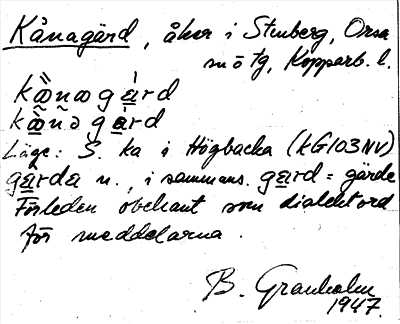 Kånagärd, åker i Stenberg, Orsa
sn ö tg, Kopparb. l.
kæ̀næ gárd
kæ̃ñə gàrd
Läge: S. ka i Högbacka (kG103NV)
garda n., i sammans. gard = gärde
Förleden obekant som dialektord
för meddelarna.
B. Granholm
1947.